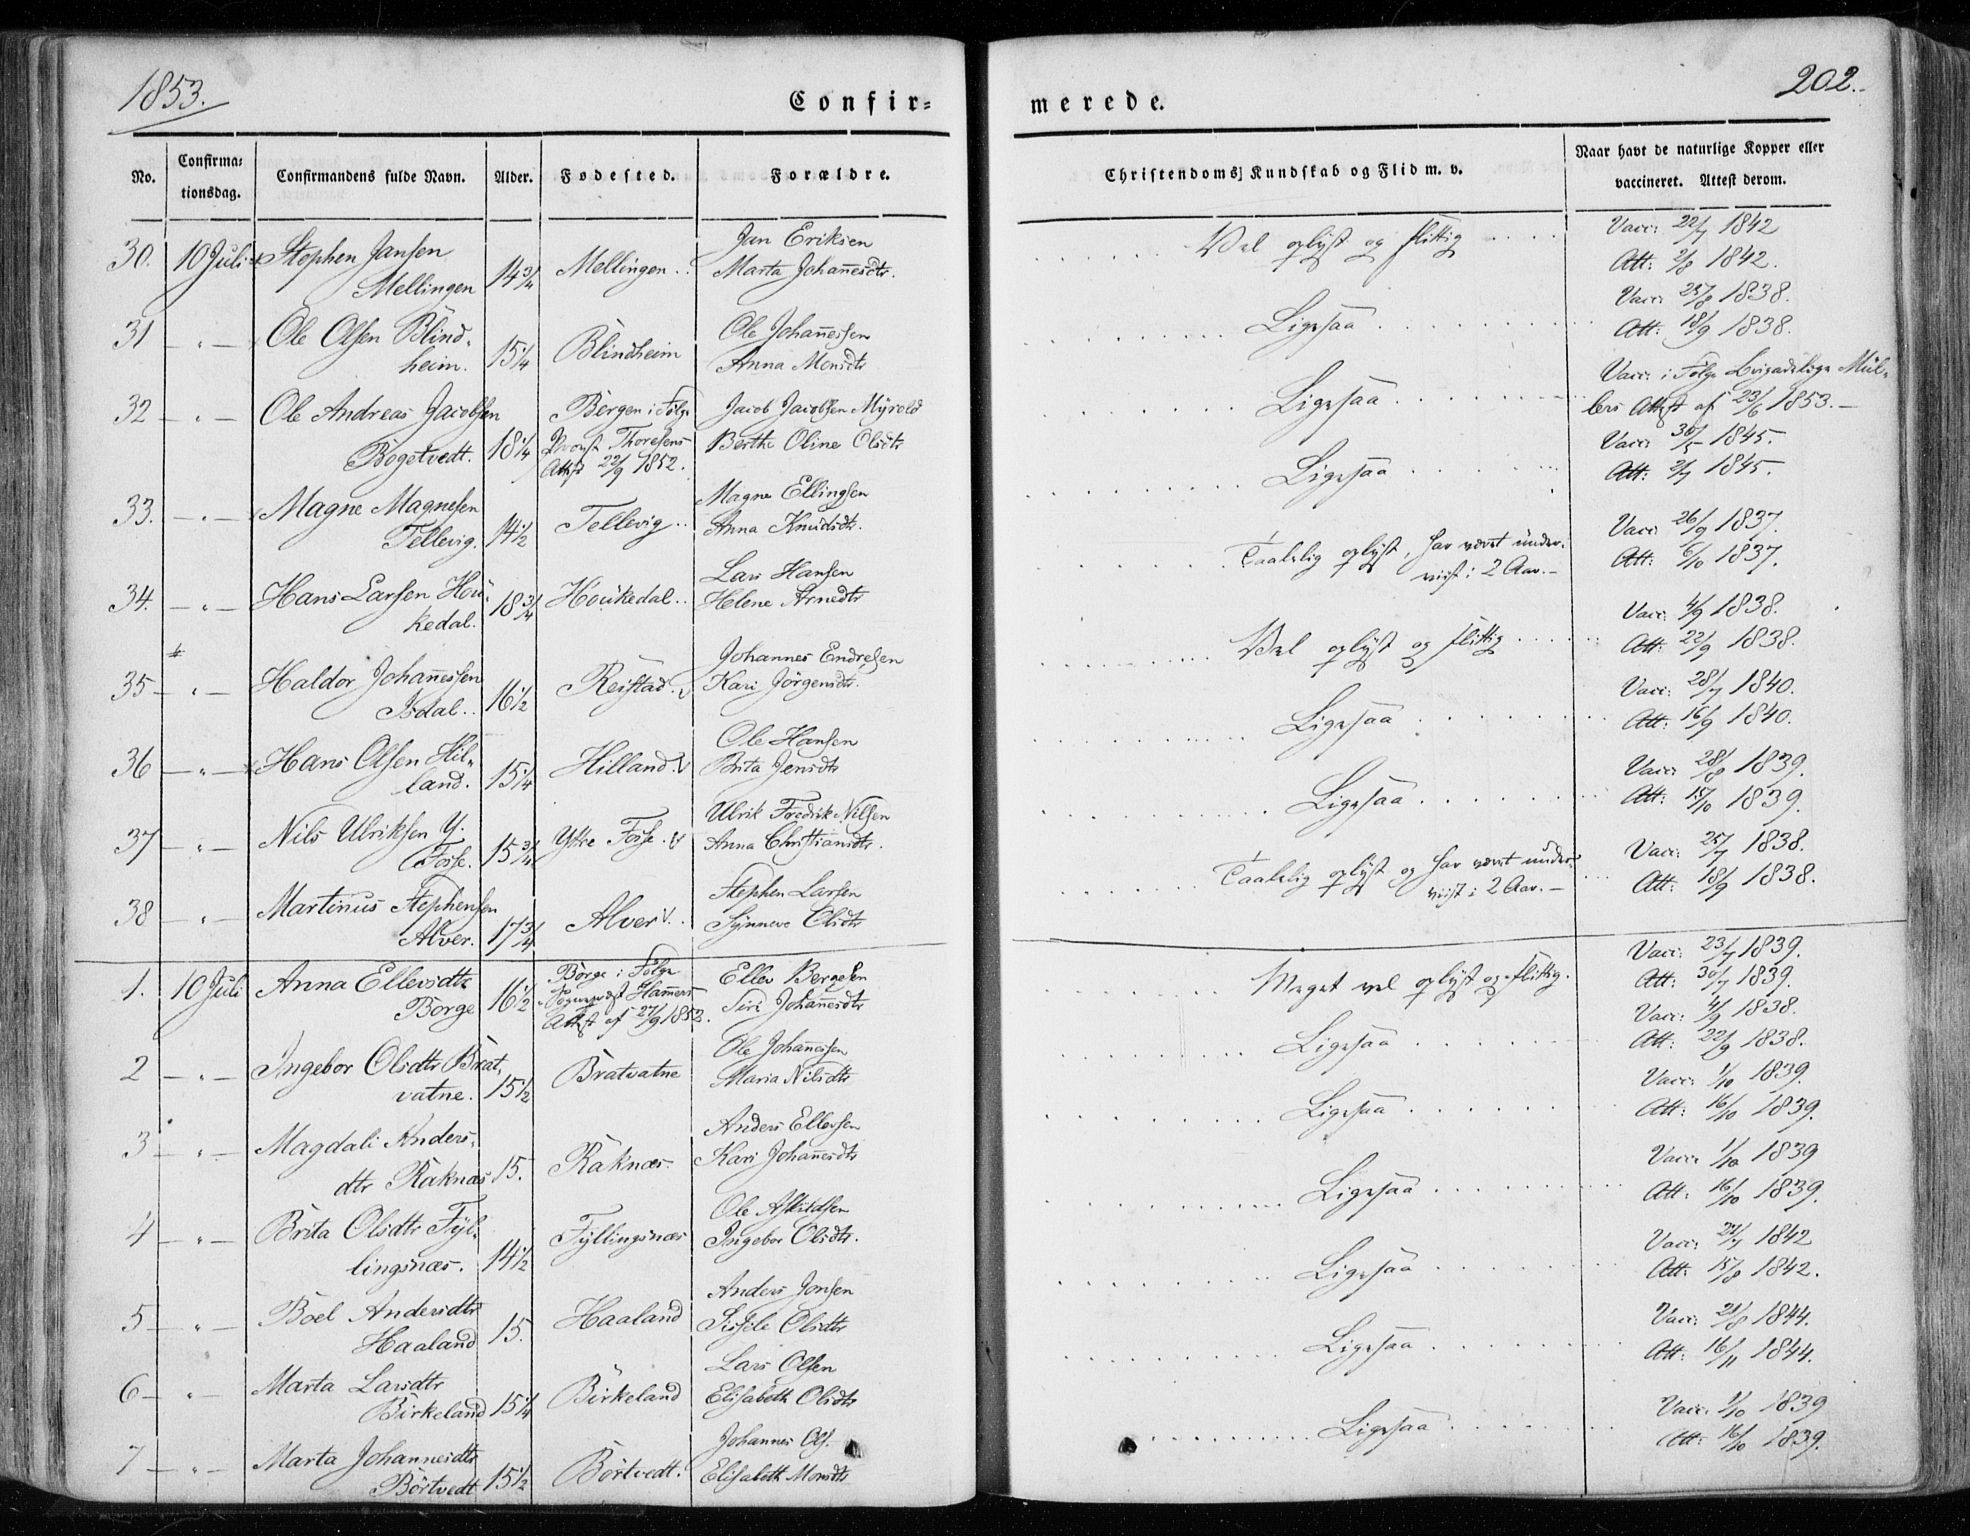 1853.
Confir=
No.
Confirma=
tionsdag.
Confirmandens fulde Navn.
Alder.
Fødested.
Forældre.
30. 10 Juli Stephen Jansen
Mellingen 14 3/4 Mellingen..
Jan Eriksen
Marta Johannesdtr.
31 — " — Ole Olsen Blind=
heim. 15 1/4 Blindheim
Ole Johannessen
Anna Monsdtr
32 — " — Ole Andreas Jacobsen
Bøgetvedt. 18 1/4
Bergen i Følge
Provst Thoresens
Attest 22/9 1852.
Jacob Jacobsen Myrold
Berthe Oline Olsdtr
33. — " — Magne Magnesen
Tellevig. 14 1/2 Tellevig..
Magne Ellingsen
Anna Knudsdtr.
34. — " — Hans Larsen Hou=
kedal. 18 3/4 Houkedal..
Lars Hansen
Helene Arnedtr
35 — " — Haldor Johannessen
Isdal.. 16 1/2 Reistad.
Johannes Endresen
Kari Jørgensdtr.
36 — " — Hans Olsen Hil=
land. 15 1/4 Hilland.
Ole Hansen
Brita Jensdtr
37 — " — Nils Ulriksen Y.
Fosse. 15 3/4 Ytre Fosse.
Ulrik Fredrik Nilsen
Anna Christiansdtr.
38 — " — Martinus Stephensen
Alver. 17 3/4 Alver
Stephen Larsen
Synneve Olsdtr
1. 10 Juli Anna Ellevsdtr
Borge 16 1/2
Borge i Følge
Sognepræst Hammers
Attest af 27/9 1852.
Ellev Bergesen
Siri Johannesdtr
2 — " — Ingebor Olsdtr Brat=
vatne. 15 1/2 Bratvatne
Ole Johannessen
Maria Nilsdtr
3 — " — Magdali Anders=
dtr Raknæs 15. Raknæs.
Anders Ellevsen
Kari Johannesdtr
4 — " — Brita Olsdtr Fyl=
lingsnæs. 14 1/2 Fyllingsnæs
Ole Askildsen
Ingebor Olsdtr.
5 — " — Boel Andersdtr
Haaland 15. Haaland
Anders Jonsen
Sissele Olsdtr
6 — " — Marta Larsdtr
Birkeland 15 1/4 Birkeland
Lars Olsen
Elisabeth Olsdtr
7 — " — Marta Johannesdtr
Børtvedt 15 1/2 Børtvedt.
Johannes Ols.
Elisabeth Monsdtr
202.
merede.
Christendoms Kundskab og Flid m. v.
Naar havt de naturlige Kopper eller
vaccineret. Attest derom.
Vel oplyst og flittig
Vacc: 22/7 1842
Att: 2/8 1842.
Ligesaa
Vacc: 25/8 1838.
Att: 18/9 1838.
Ligesaa
Vacc: i Følge Brigadelæge Mül=
lers Attest af 23/6 1853.—
Ligesaa
Vacc: 30/5 1845.
Att: 2/7 1845.
Taalelig oplyst, har været under=
viist i 2 Aar.—
Vacc: 26/9 1837.
Att: 6/10 1837.
Vel oplyst og flittig
Vacc: 4/9 1838.
Att: 22/9 1838.
Ligesaa
Vacc: 28/7 1840.
Att: 16/9 1840.
Ligesaa
Vacc: 28/8 1839.
Att: 15/10 1839.
Taalelig oplyst og har været under=
viist i 2 Aar.—
Vacc: 25/7 1838.
Att: 18/9 1838.
Meget vel oplyst og flittig.
Vacc: 23/7 1839.
Att: 30/7 1839.
Ligesaa
Vacc: 4/9 1838.
Att: 22/9 1838.
Ligesaa
Vacc: 1/10 1839.
Att: 16/10 1839.
Ligesaa
Vacc: 1/10 1839
Att: 16/10 1839.
Ligesaa
Vacc: 1842
Att: 15/8 1842.
Ligesaa
Vacc: 21/8 1844.
Att: 16/11 1844.
Ligesaa
Vacc: 1/10 1839
Att: 16/10 1839.